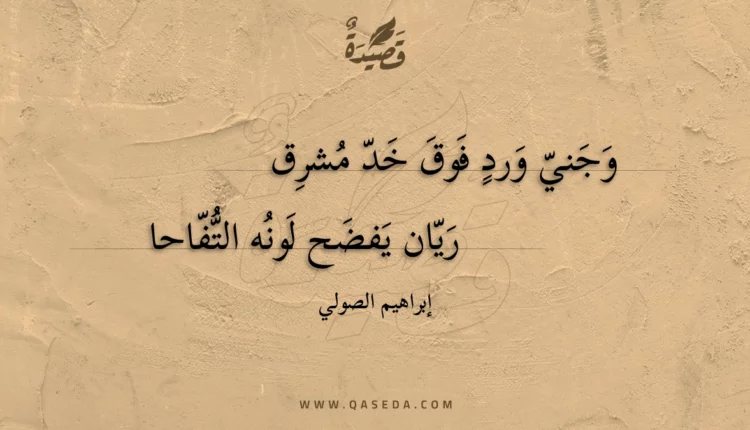 قَصِيْدَةٌ
وَجَنيّ وَردٍ فَوقَ خَدّ مُشرِق
رَيّان يَفضَح لَونُه التُّفّاحا
إبراهيم الصولي
WWW.QASEDA.COM